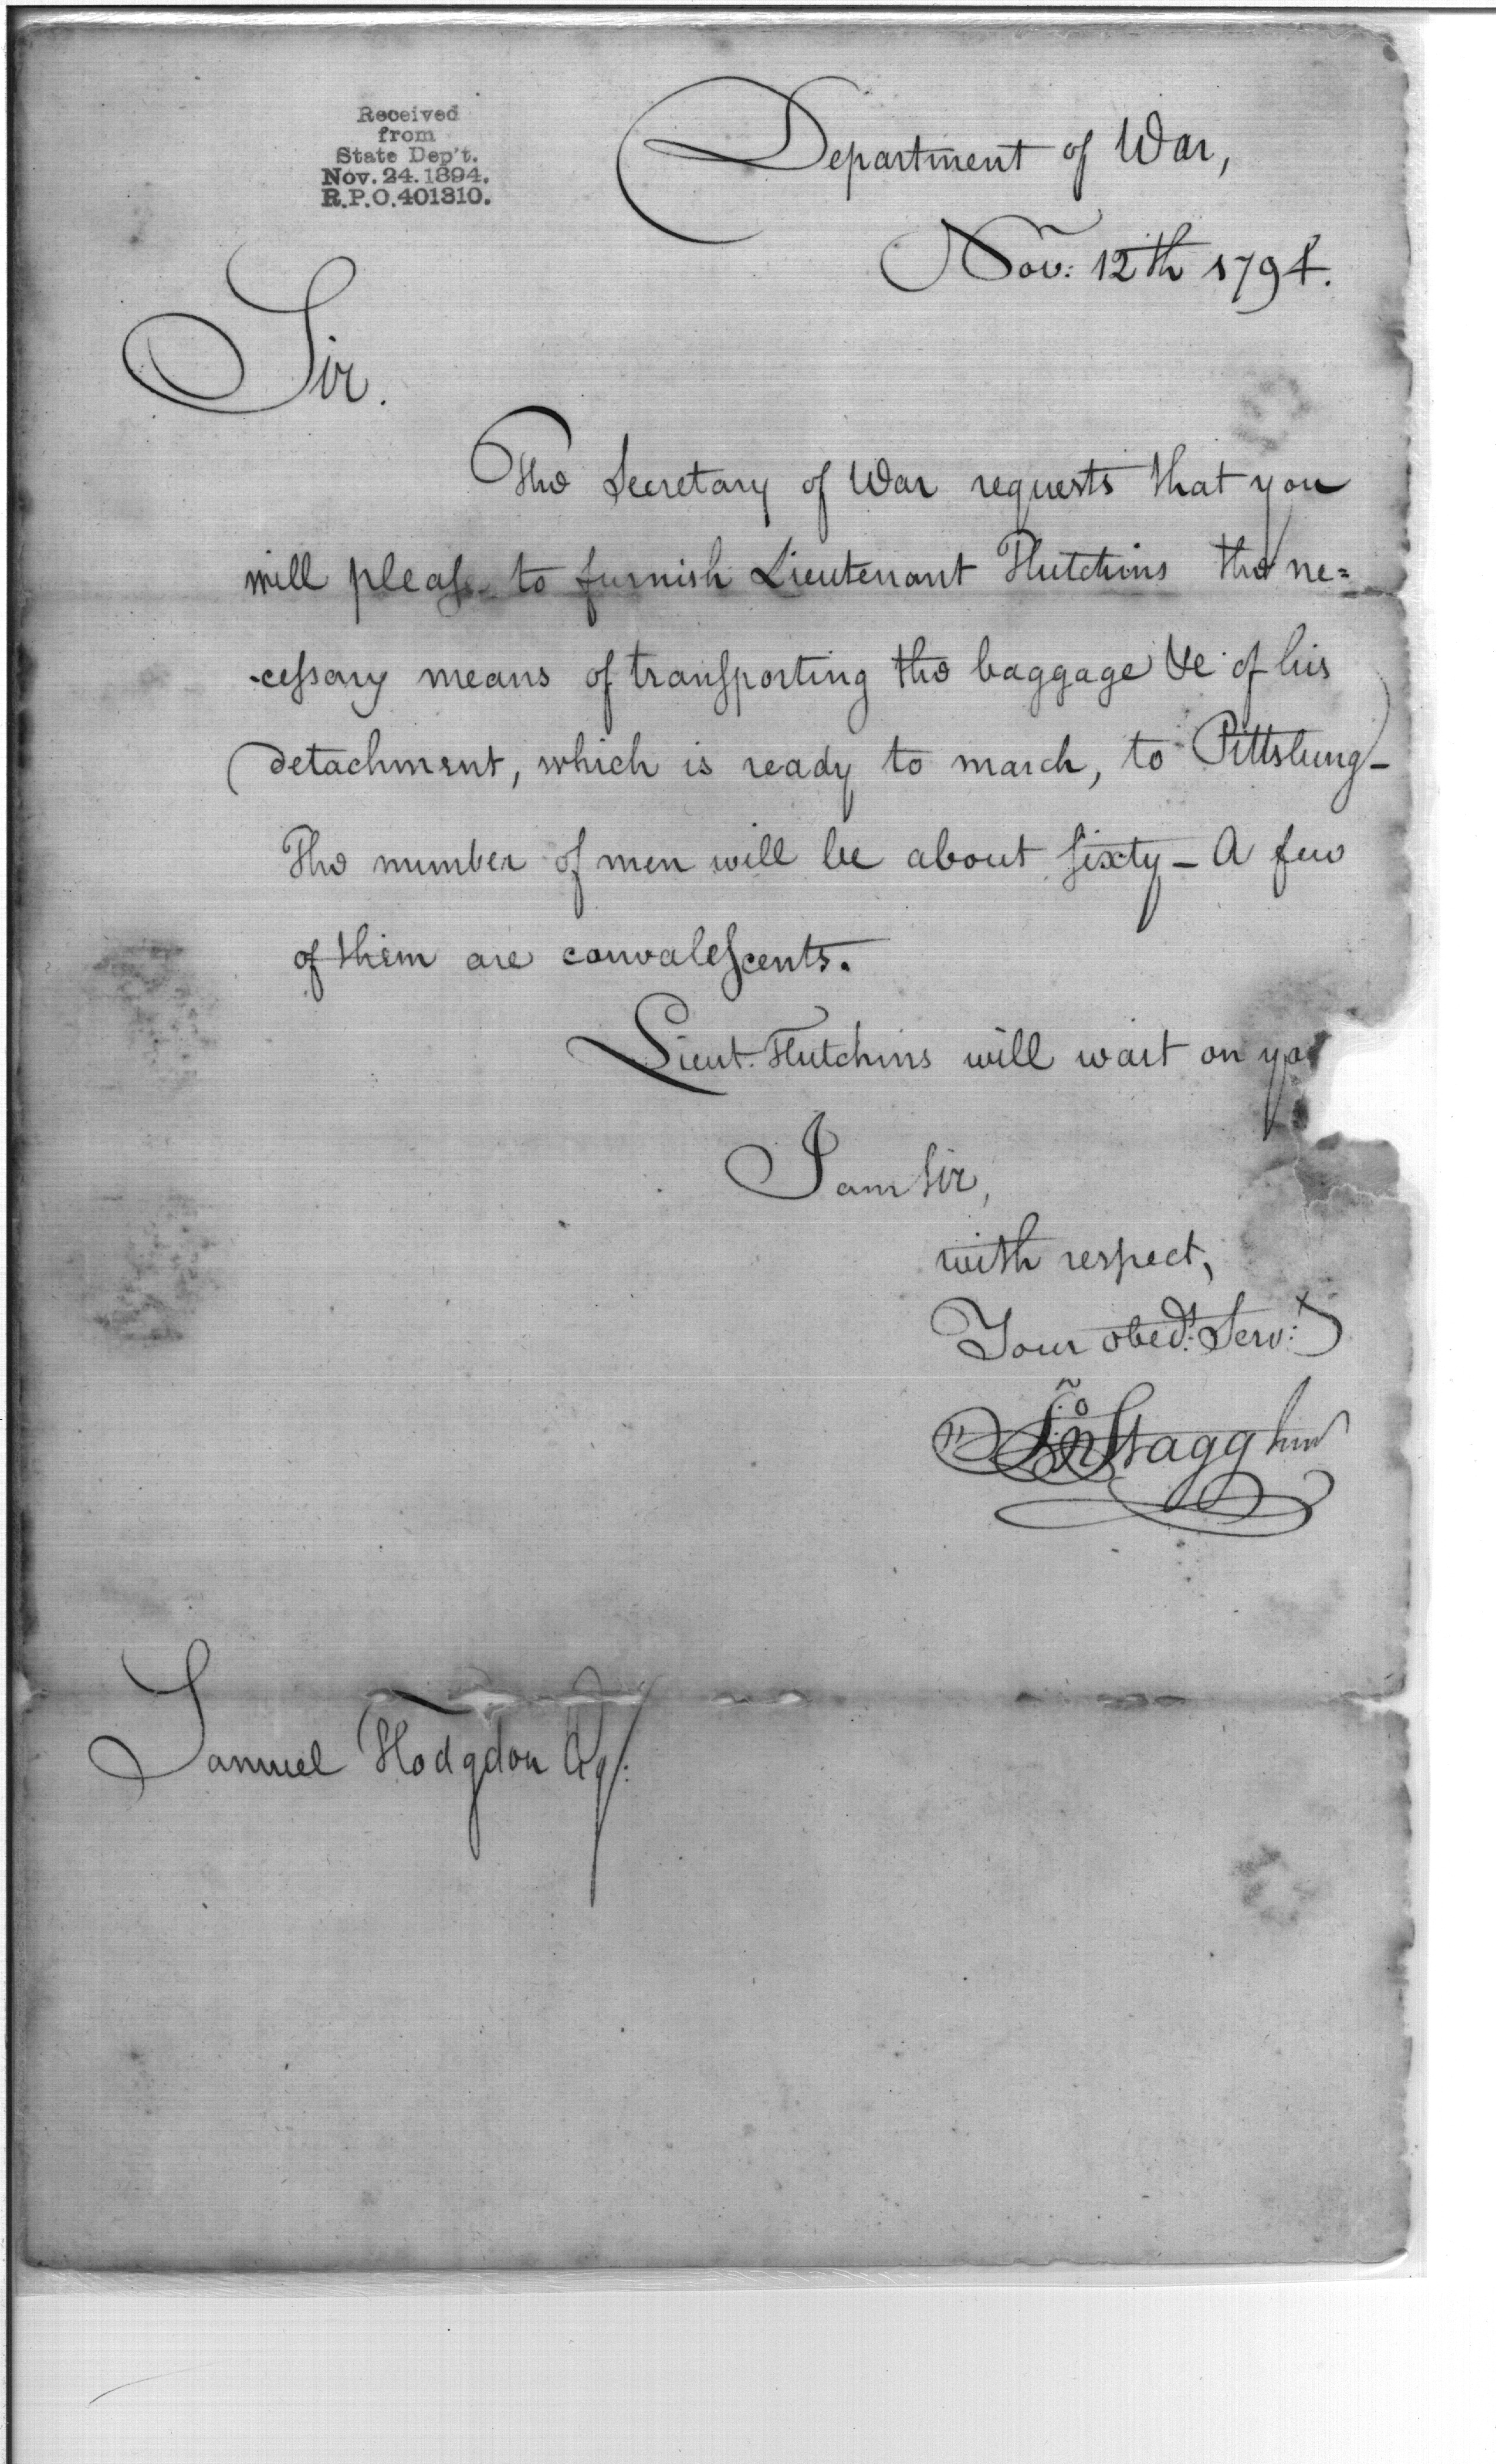 Received
from
State Dep't.
Nov. 24. 1894.
R.P.O. 401310.
Department of War,
Nov: 12th 1794.
Sir.
The Secretary of War requests that you
will please to furnish Lieutenant Hutchins the ne=
-cessary means of transporting the baggage &c of his
detachment, which is ready to march, to Pittsburg-
The number of men will be about sixty - A few
of them are convalescents.
Lieut. Hutchins will wait on you
I am sir,
with respect,
Your obedt. Servt.
Jno Stagg junr
Samuel Hodgdon Esq: